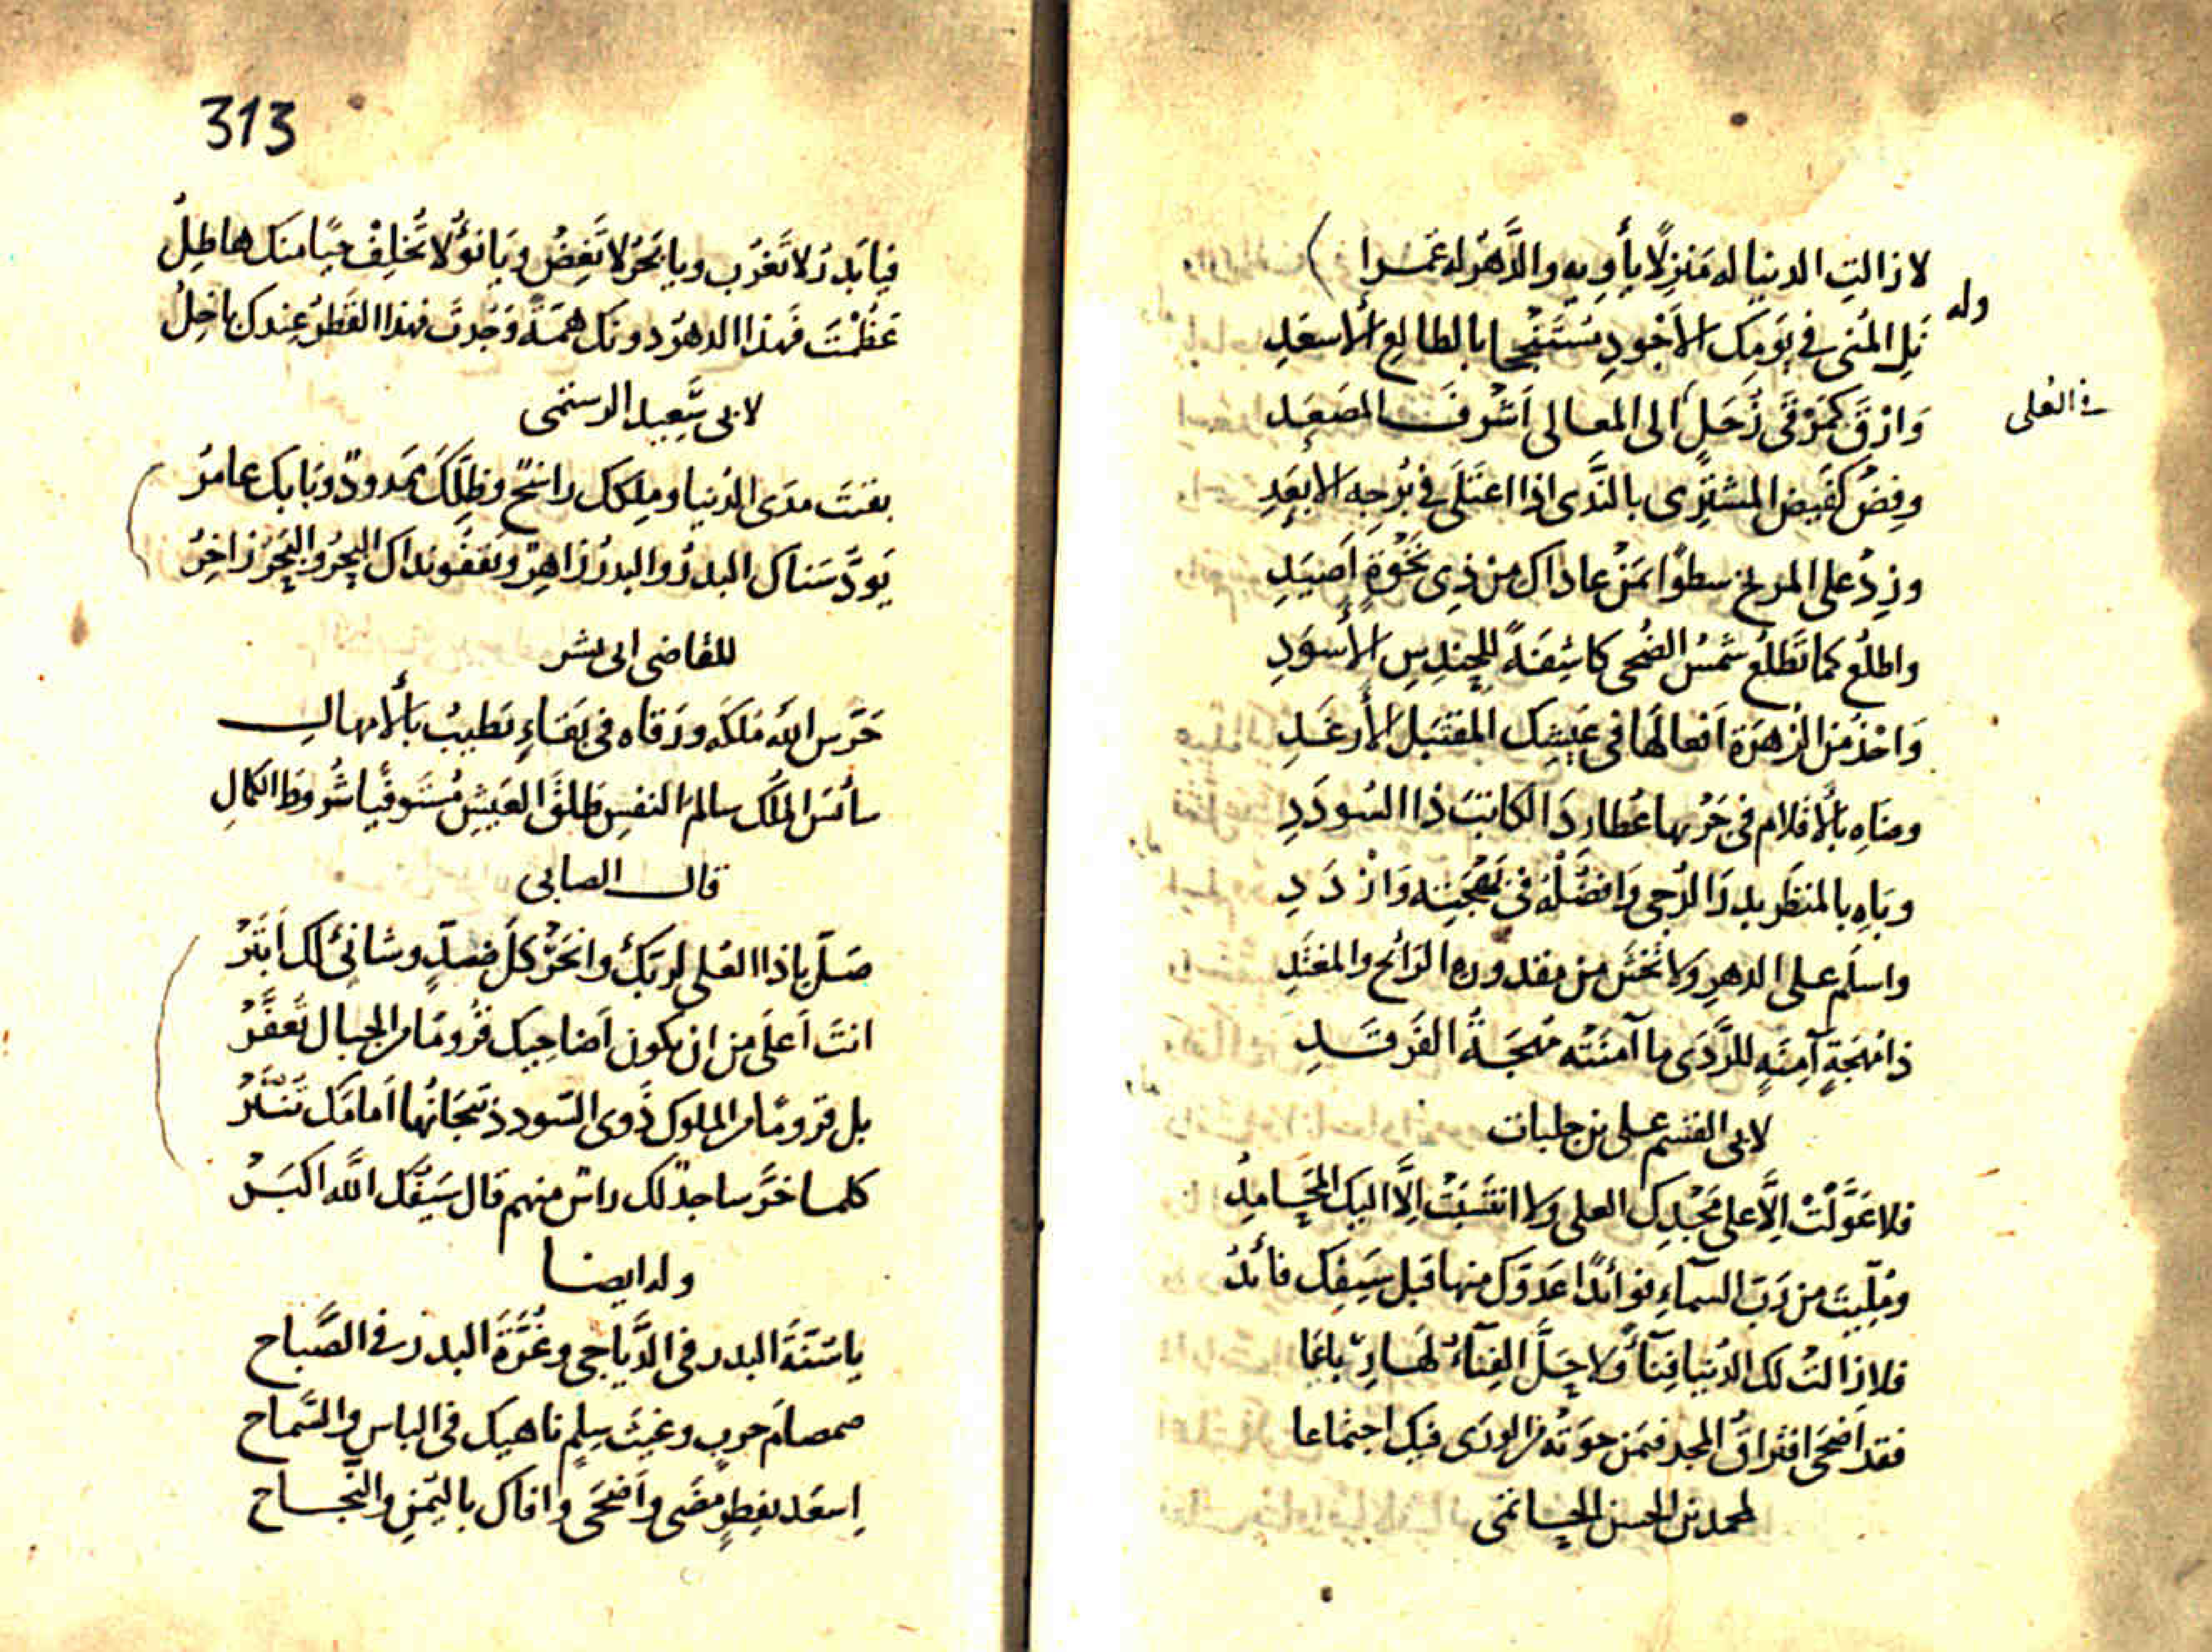 لا زالتِ الدنيا له مَنزِلًا يأوِيه والدَّهرُ له عُمرا
وله
نَلِ المُنى في يَومِكَ الأَجْودِ مُستَنجِحا بالطالعِ الأسعَدِ
وَارْقَ كمَرْقَى زُحَلٍ الى المعالى أشرفَ المصَعدِ
في العُلى
وفِضْ كفَيضِ المشتَرِى بالنَّدى اذا اعتَلى في بُرجِه الابعَدِ
وزِدْ على المريخ سطوًا بمَنْ عاداك من ذِى نَخْوةٍ أصيَدِ
واطلُع كما تَطلعُ شمسُ الضُحى كاشِفةً للحِندِسِ الأسوَدِ
وَاخذ من الزُهَرَة أفعالَها في عَيشِك المقتبَلِ الأرغَدِ
وضَاهِ بالأقلام في جَرْيها عُطارِدَ الكاتبَ ذا السُودَدِ
وبَاهِ بالمنظَرِ بدرَ الدُجى وَافضُلْهُ في بَهجَتِه وَازْدَدِ
واسلَم على الدهرِ ولا تخشَ من مقدورِه الرائح والمغتَدِ
ذا مُهجَةٍ آمِنَةٍ للرَّدَى ما آمنَتْه مُهجَةُ الفَرقَدِ
لابى القسم على بن جلبات
فلا عَوَّلَتْ إلّا على مَجْدِك العلى ولا انتسَبَتْ إلّا اليك المحَامِدُ
ومُلِّيتَ من رَبّ السماءِ فوائدًا عَدوّك منها قبل سَيفِك فائدُ
فلا زالتْ لك الدُنيا فِناءً ولا حَلَّ الفِناءَ لها رِباعَا
فقد أضحَى افتراقُ المجد فيمَن حوَتْه من الورَى فيك اجتماعا
لمحمد بن الحسن الحاتمى
313
فيَا بَدرُ لا تَغرُب ويا بَحرُ لا تَغِضْ ويَا نَوْءُ لا تُخلِفْ حيًا منك هاطِلُ
عَظُمْتَ فهذا الدهرُ دونك همّةً وَجُدتَ فهذا القَطرُ عِندك باخِلُ
لابى سَعِيد الرستمى
بقيتَ مدَى الدُنيا ومِلكك راسِخٌ وظِلّكَ مَمدودٌ وبَابك عامرُ
يَودّ سَناك البدرُ والبدرُ زاهِرٌ ويَقفُو نداك البحرُ والبَحرُ زاخِرُ
للقاضى ابى بشر
حَرَسَ اللهُ مُلكَه ورَقاه في بَقاءٍ يَطيبُ بالامهالِ
سائسَ الملك سالمَ النفسِ طلقَ العَيشِ مُستَوفِيا شُروطَ الكمالِ
قال الصابى
صَلِّ ياذا العُلى لربّكَ وانحَرْ كلّ ضدٍّ وشانئٍ لك أبتَرْ
انتَ أعلَى من ان يكون أضاحِيك قُرومًا من الجِمال تُعَقَّرْ
بل قرومًا من الملوك ذَوى السّودد تِيجَانُها أمامَك تُنثَرْ
كلما خرَّ ساجدٌ لك راسٌ منهم قال سَيفُك الله اكبَرْ
وله ايضا
يا سُنّةَ البدر في الدَّياجى وغُرّةَ البدر في الصَّباحِ
صمصامَ حربٍ وغيثَ سِلمٍ ناهيك في الباسِ والسَماحِ
إسعَد بفِطرٍ مضَى وأضحَى وافاك باليُمنِ والنَجاحِ